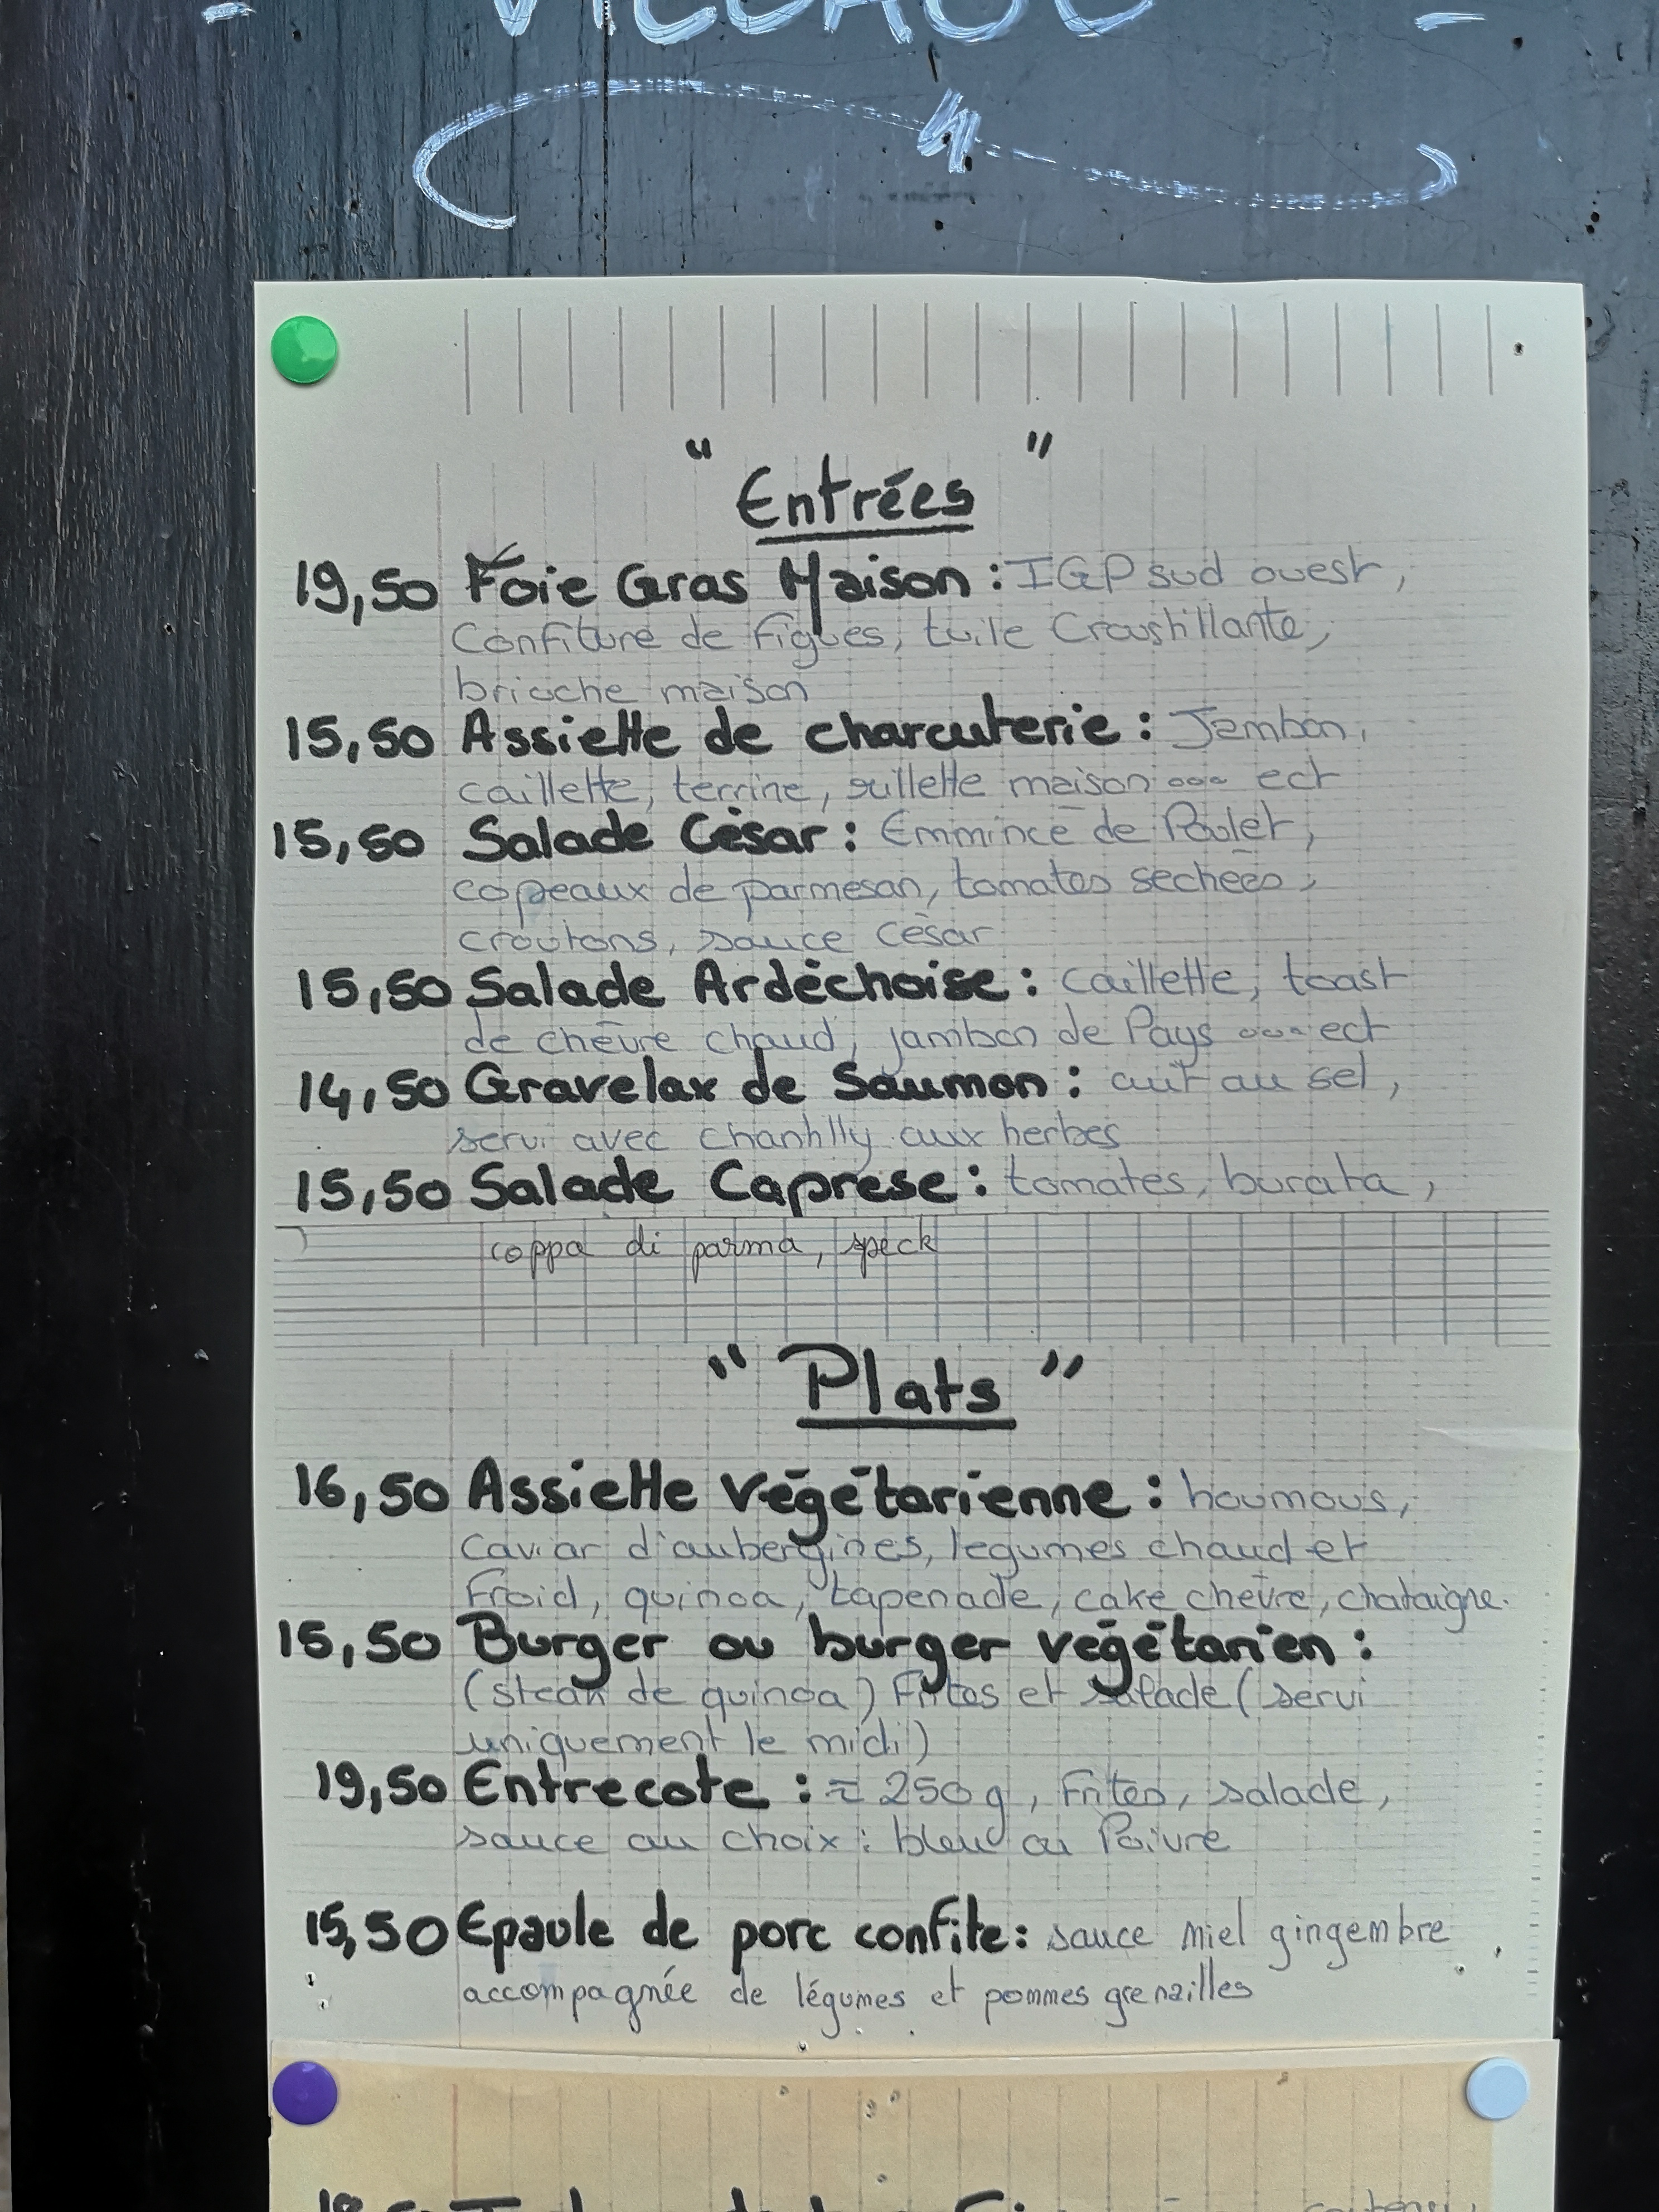 - VILLAGE -
" Entrées "
19,50 Foie Gras Maison : IGP sud ouest,
Confiture de Figues, tuile Croustillante,
brioche maison
15,50 Assiette de charcuterie : Jambon,
caillette, terrine, rillette maison ... ect
15,50 Salade César : Emmincé de Poulet,
copeaux de parmesan, tomates sechées,
croutons, sauce César
15,50 Salade Ardéchoise : caillette, toast
de chèvre chaud, jambon de Pays ... ect
14,50 Gravelax de Saumon : cuit au sel,
servi avec chantilly aux herbes
15,50 Salade Caprese : tomates, burata,
coppa di parma, speck
" Plats "
16,50 Assiette végétarienne : houmous,
Caviar d'aubergines, legumes chaud et
Froid, quinoa, tapenade, cake chevre, chataigne.
15,50 Burger ou burger végétarien :
(steak de quinoa) Frites et salade (servi
uniquement le midi)
19,50 Entrecote : ≈ 250g, Frites, salade,
sauce au choix : bleu ou Poivre
15,50 Epaule de porc confite : sauce miel gingembre
accompagnée de légumes et pommes grenailles